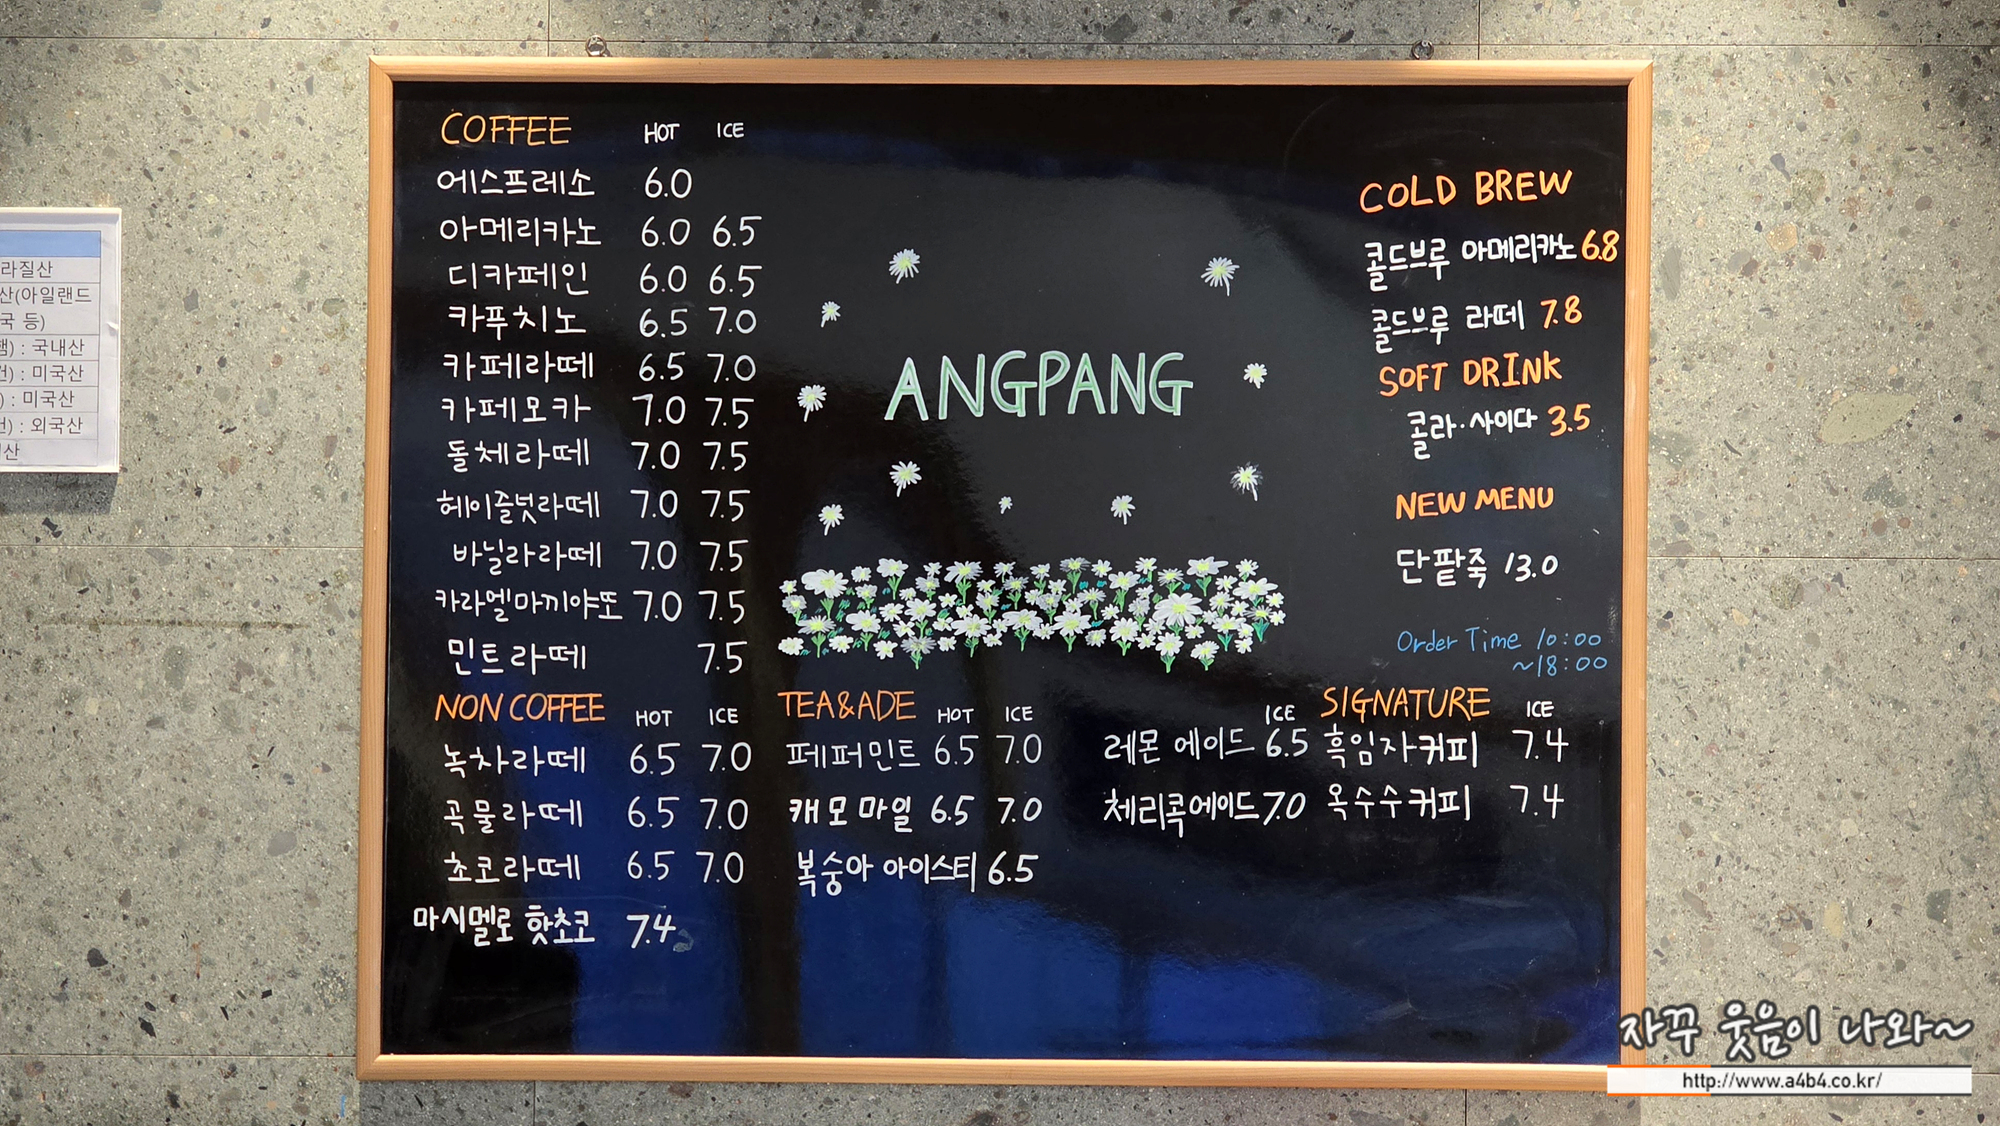 COFFEE HOT ICE
에스프레소 6.0
아메리카노 6.0 6.5
디카페인 6.0 6.5
카푸치노 6.5 7.0
카페라떼 6.5 7.0
카페모카 7.0 7.5
돌체라떼 7.0 7.5
헤이즐넛라떼 7.0 7.5
바닐라라떼 7.0 7.5
카라멜마끼야또 7.0 7.5
민트라떼 7.5
NON COFFEE HOT ICE
녹차라떼 6.5 7.0
곡물라떼 6.5 7.0
초코라떼 6.5 7.0
마시멜로 핫초코 7.4
ANGPANG
TEA&ADE HOT ICE
페퍼민트 6.5 7.0
캐모마일 6.5 7.0
복숭아 아이스티 6.5
ICE
레몬 에이드 6.5
체리콕에이드 7.0
COLD BREW
콜드브루 아메리카노 6.8
콜드브루 라떼 7.8
SOFT DRINK
콜라·사이다 3.5
NEW MENU
단팥죽 13.0
Order Time 10:00
~18:00
SIGNATURE ICE
흑임자커피 7.4
옥수수커피 7.4
라질산
산(아일랜드
국 등)
햄) : 국내산
건) : 미국산
) : 미국산
건) : 외국산
산
자꾸 웃음이 나와~
http://www.a4b4.co.kr/